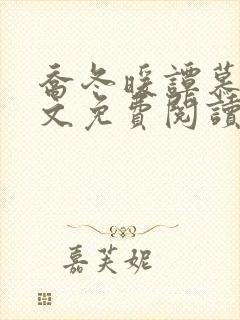 喬冬暖譚慕
文免費閱讀
嘉芙妮